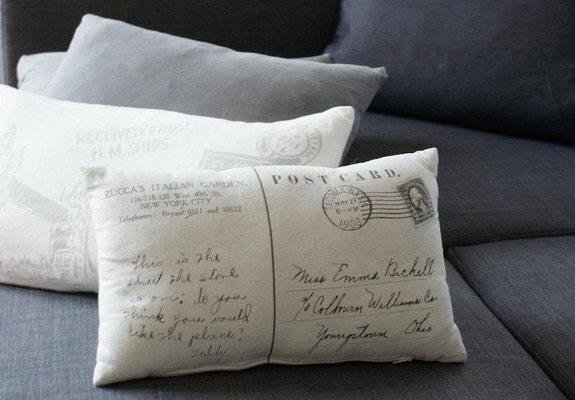 RECEIVED FROM
H.M. SHIPS
ZUCCA'S ITALIAN GARDEN.
116-118-120 West 49th St.
NEW YORK CITY
Telephones:- Bryant 9521 and 10122
This is the
street the store
is on; do you
think you would
like the place?
POST CARD.
TACOMA, WASH.
MAY 27
6-PM
1908
Miss Emma Bichell
c/o Colbourn Williams Co
Youngstown Ohio